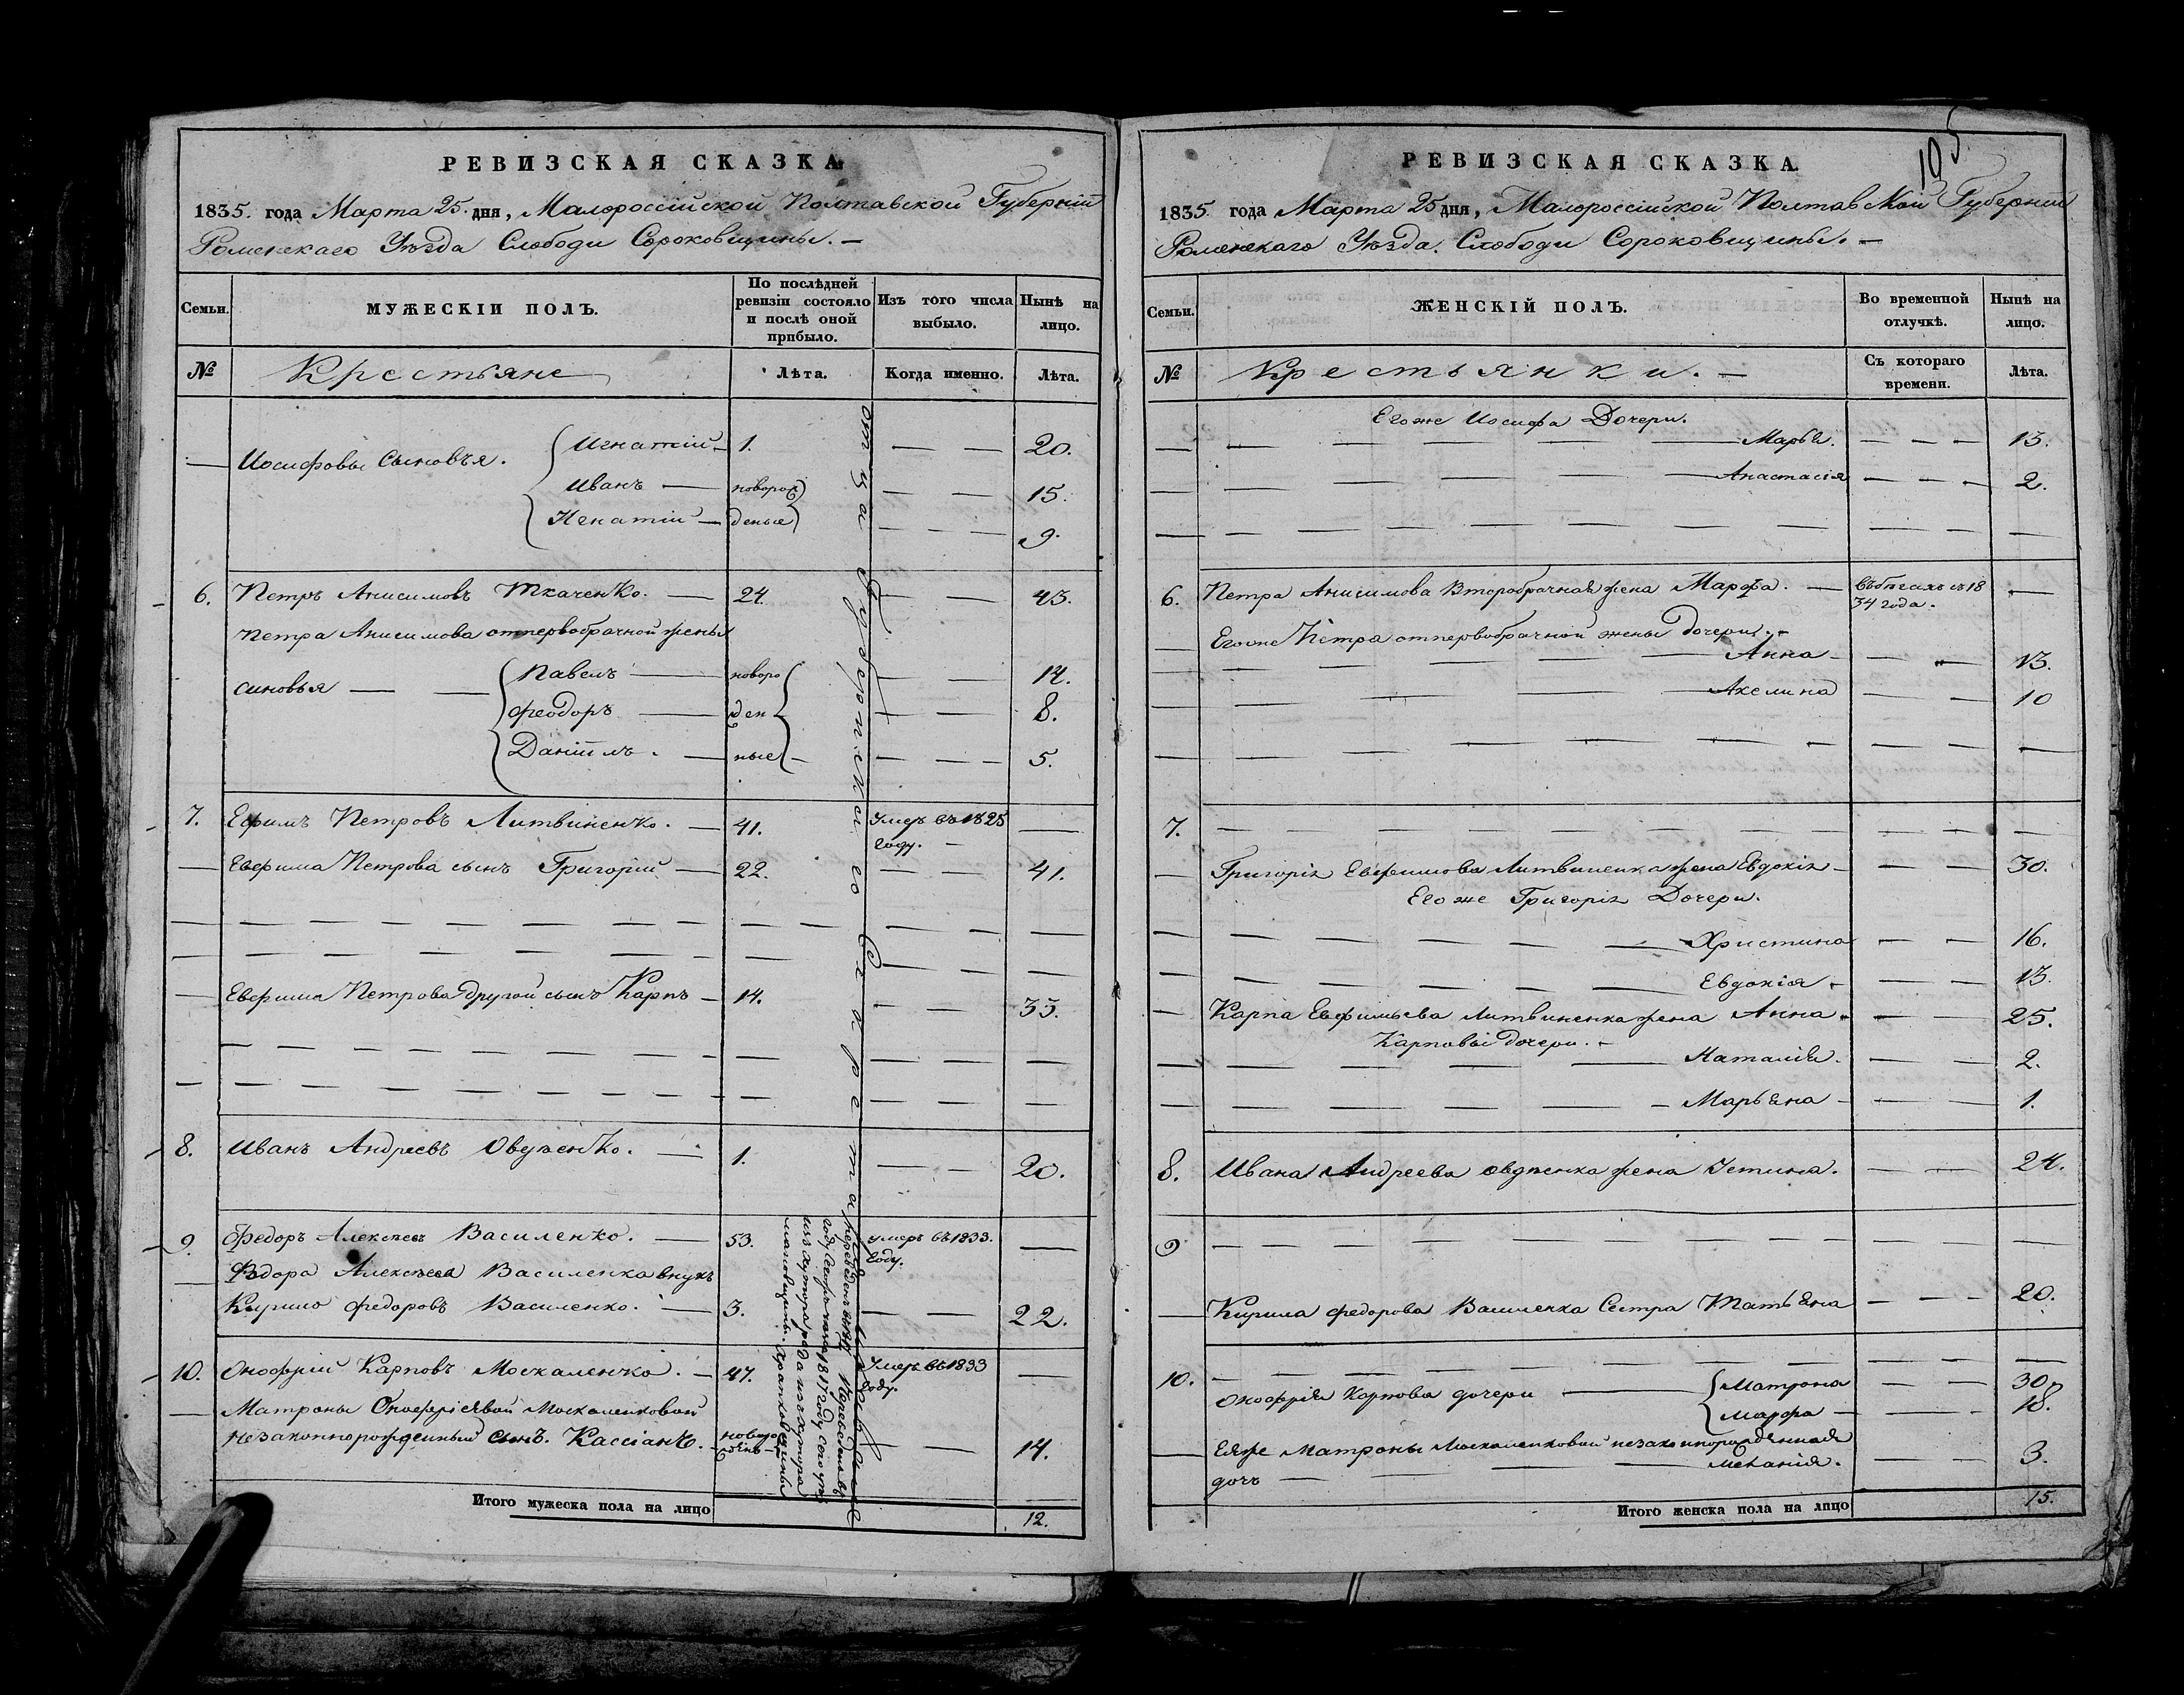 РЕВИЗСКАЯ СКАЗКА
1835. года Марта 25. дня, Малороссійской Полтавской Губерніи
Роменскаго Уѣзда Слободи Сороковщины. —
Семьи.
МУЖЕСКІЙ ПОЛЪ.
По послѣдней ревизіи состояло и послѣ оной прибыло.
Изъ того числа выбыло.
Нынѣ на лицо.
№
Крестьяне
Лѣта.
Когда именно.
Лѣта.
— Иосифовы Сыновья. Игнатій — 1. — — 20.
Иванъ — новорож — — 15.
Игнатій — деные — — 9.
6. Петръ Анисимовъ Ткаченко. — 24. — — 43.
Петра Анисимова отпервобрачной жены
синовья — — Павелъ — новоро — — 14.
Феодоръ — жден — — 8.
Даніилъ. — ные — — — — 5.
7. Ефимъ Петровъ Литвиненко. — 41. Умеръ въ 1825 году. — —
— Евфима Петрова сынъ Григорій — 22. — — 41.
— Евфима Петрова другой сынъ Карпъ — 14. — — 33.
8. Иванъ Андреевъ Овдіенко. — 1. — — 20.
9. Федоръ Алексѣевъ Василенко. — 53. умеръ въ 1833. году. —
— Федора Алексѣева Василенка внукъ
Кирило Федоровъ Василенко. — 3. — — 22.
10. Онофрій Карповъ Москаленко. — 47. Умеръ въ 1833 году. —
— Матроны Онофріевой Москаленковой
незаконнорожденный сынъ. Кассіанъ. — новорожденъ — — — 14.
отца Губернскаго Секретаря
Итого мужеска пола на лицо 12.
РЕВИЗСКАЯ СКАЗКА.
105
1835 года Марта 25 дня, Малороссійской Полтавской Губерніи
Роменскаго Уѣзда. Слободи Сороковщины. —
Семьи.
ЖЕНСКІЙ ПОЛЪ.
Во временной отлучкѣ.
Нынѣ на лицо.
№
Крестьянки. —
Съ котораго времени.
Лѣта.
Егоже Иосифа Дочери.
— Марья. — — — 13.
— Анастасія — — — 2.
6. Петра Анисимова Второбрачная жена Марфа. — Въбѣгахъ съ 18
34 года. —
Егоже Петра отпервобрачной жены дочери. —
Анна — — — 13.
Акелина — — 10
7. — — —
— Григорія Евфимова Литвиненка жена Евдокія — — — 30.
Егоже Григорія Дочери.
— Христина — — 16.
— Евдокія — — — 13.
— Карпа Евфимьева Литвиненка жена Анна — — — 25.
Карповы дочери. —
— Наталія. — — 2.
— Марьяна — — — 1.
8. Ивана Андреева Овдіенка жена Устина. — — 24.
9 — — —
— Кирила Федорова Василенка Сестра Татьяна — — — 20.
10. — — —
Онофрія Карпова дочери — Матрона — — 30.
Марфа — — — 18.
— Еяже Матроны Москаленковой незаконнорожденная
дочь — — Меланія. — — 3.
Итого женска пола на лицо 15.